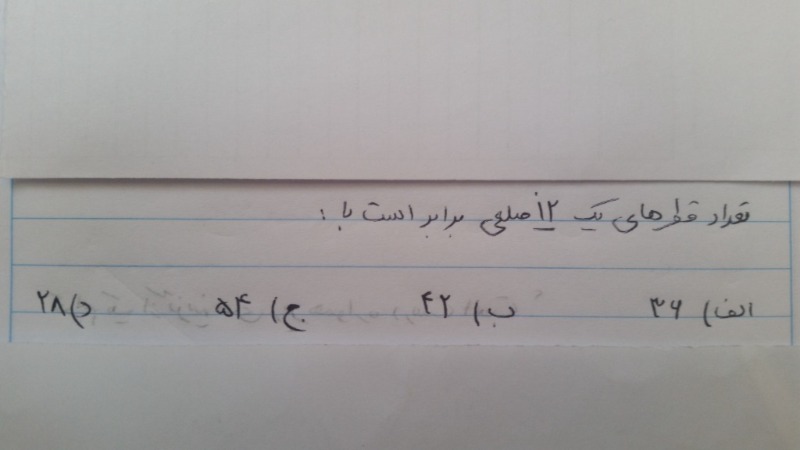 تعداد قطرهای یک ۱۲ ضلعی برابر است با :
الف) ۳۶ ب) ۴۲ ج) ۵۴ د) ۲۸